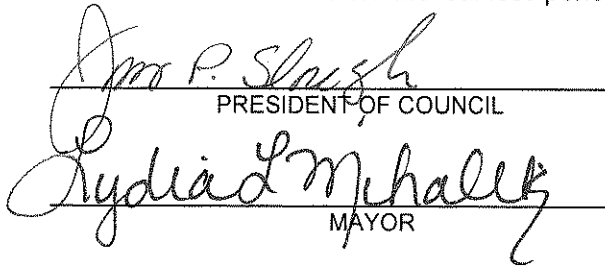 Jim P. Slough
PRESIDENT OF COUNCIL
Lydia L Mihalik
MAYOR